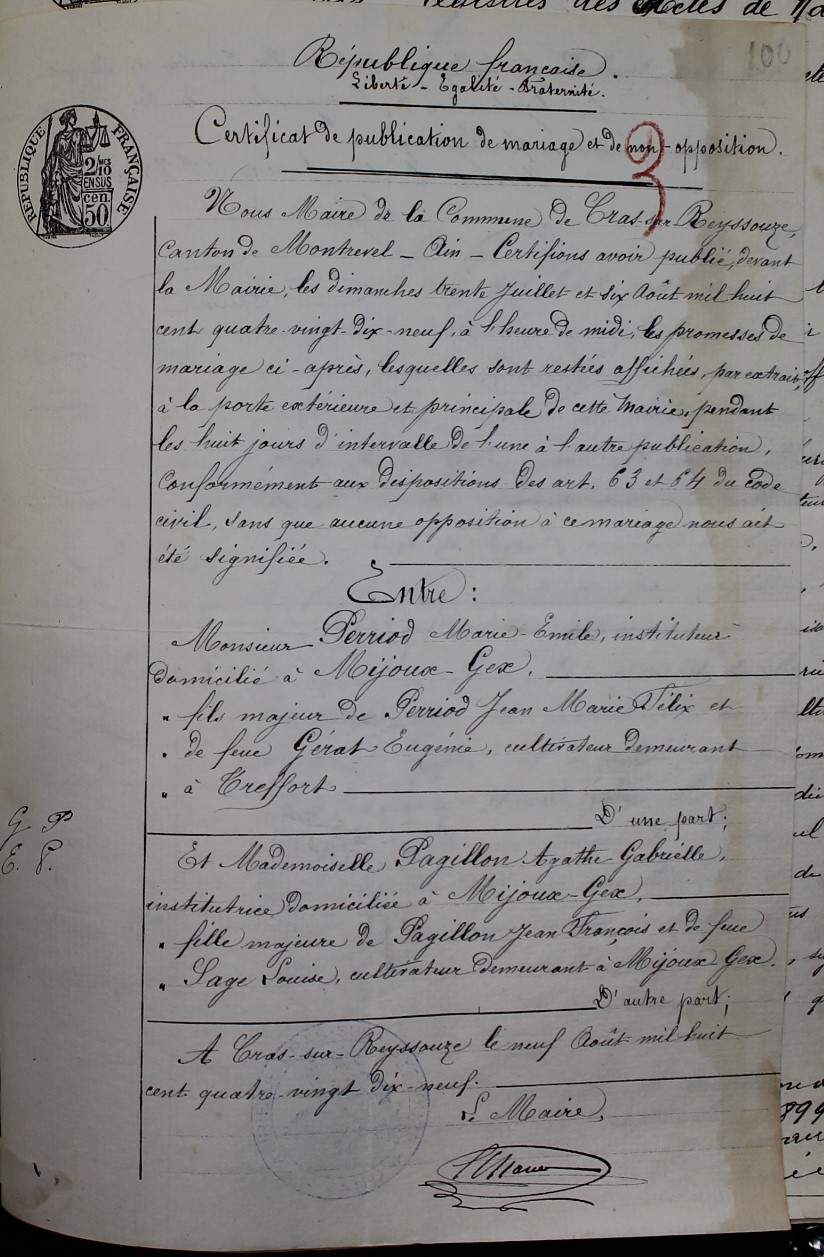 100
République française.
Liberté - Egalité - Fraternité.
Certificat de publication de mariage et de non-opposition.
3
RÉPUBLIQUE FRANÇAISE
2/10mes
EN SUS
cen.
50
Nous Maire de la Commune de Cras-sur-Reyssouze,
canton de Montrevel - Ain - Certifions avoir publié, devant
la Mairie, les dimanches trente Juillet et six Août mil huit
cent quatre-vingt-dix-neuf, à l'heure de midi, les promesses de
mariage ci-après, lesquelles sont restées affichées, par extrait,
à la porte extérieure et principale de cette Mairie, pendant
les huit jours d'intervalle de l'une à l'autre publication,
conformément aux dispositions des art. 63 et 64 du code
civil, sans que aucune opposition à ce mariage nous ait
été signifiée.
Entre :
Monsieur Perriod Marie-Emile, instituteur
domicilié à Mijoux-Gex.
" fils majeur de Perriod Jean Marie Félix et
" de feue Gérat Eugénie, cultivateur demeurant
" à Treffort
D'une part;
G P
E. P.
Et Mademoiselle Pagillon Agathe Gabrielle,
institutrice domiciliée à Mijoux-Gex,
" fille majeure de Pagillon Jean François et de feue
" Sage Louise, cultivateur demeurant à Mijoux Gex.
D'autre part;
A Cras-sur-Reyssouze le neuf Août mil huit
cent quatre-vingt dix-neuf.
Le Maire,